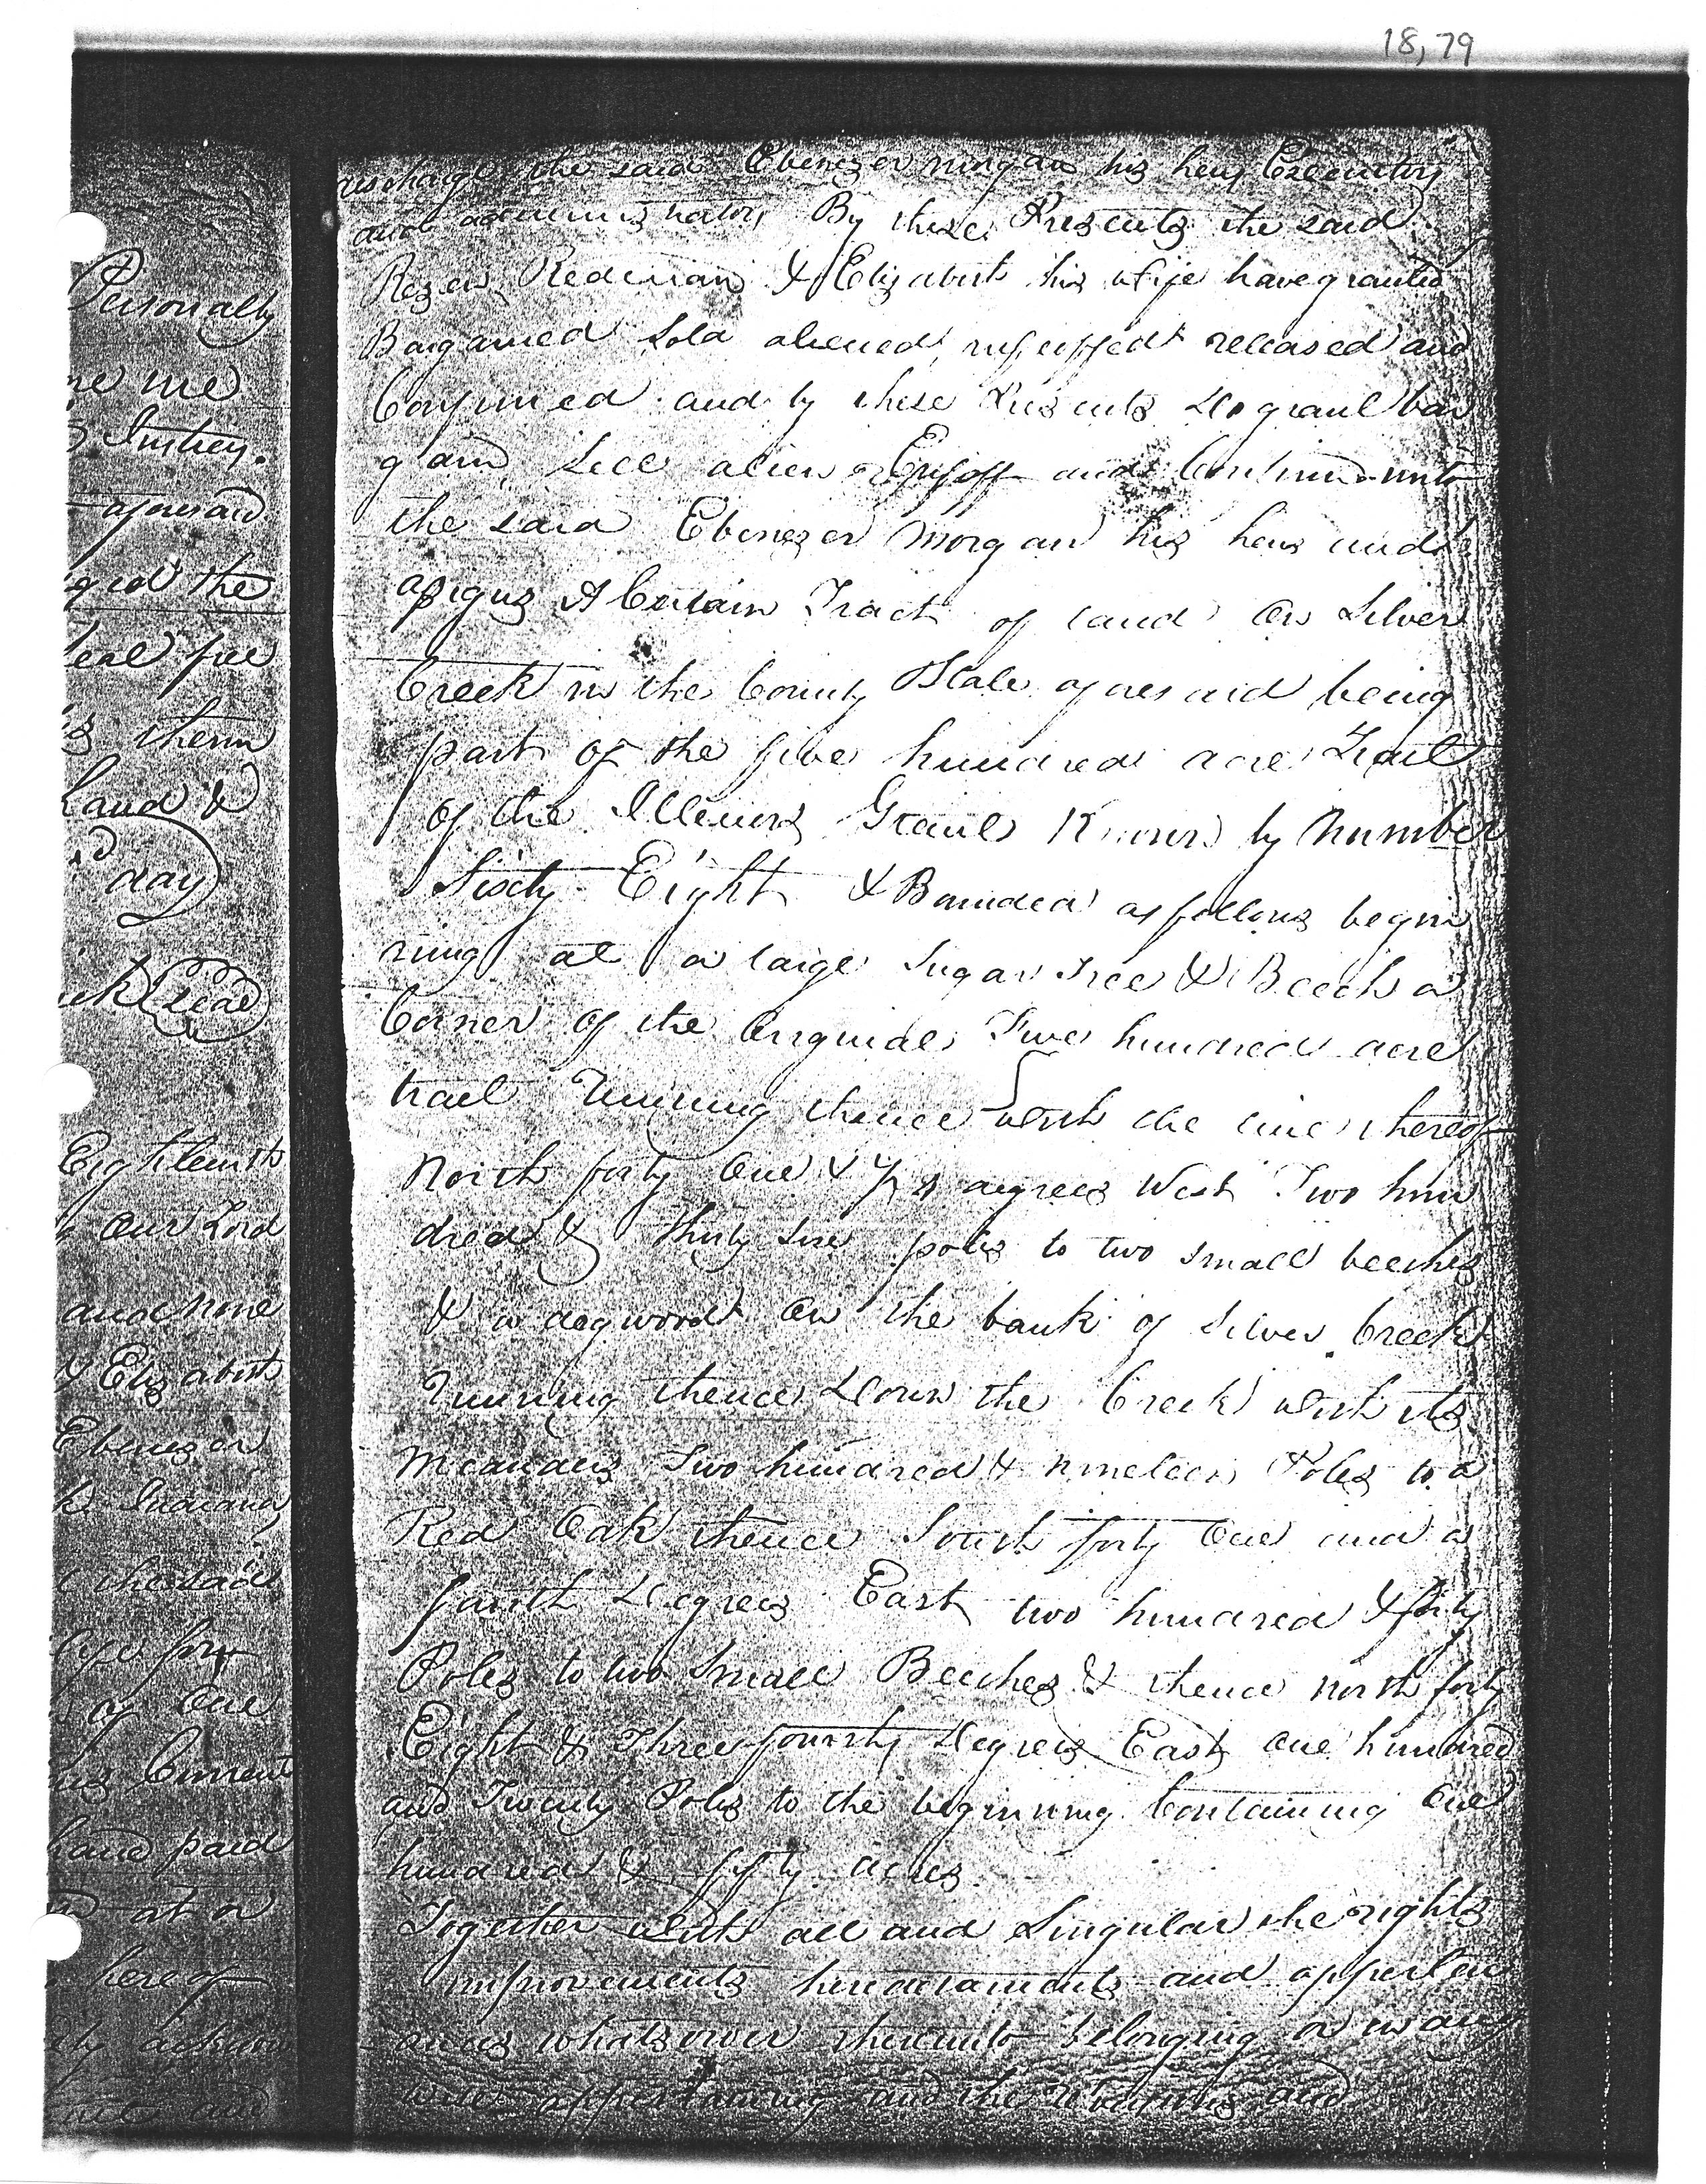 18,79
Personally
me me
Instrey.
aforesaid
ged the
Seal free
therin
hand &
day
Seal
Eighteenth
Our Lord
and none
& Elizabeth
Ebenezer
k Indiana
the said
of One
Current
hand paid
at or
hereof
and
discharge the said Ebenezer morgan his heirs Executors
and administrators By these Presents the said
Rezen Redman & Elizabeth his wife have granted
Bargained Sold aliened infeoffed released and
Confirmed and by these Presents do grant bar
gain, Sell alien Enfoff and Confirm unto
the said Ebenezer Morgan his heirs and
assigns A Certain Tract of land On Silver
Creek in the County State aforesaid being
part of the five hundred acre Tract
of the Illenois Grant Known by Number
Sixty Eight & Bounded as follows begin
ning at a large Sugar Tree & Beech a
Corner of the Orriginal Five hundred acre
tract Running thence with the line thereof
North forty One & 1/4 degrees West Two hun
dred & thirty Six poles to two small beeches
& a dogwood On the bank of Silver Creek
Running thence Down the Creek with its
Meanders Two hundred & nineteen Poles to a
Red Oak thence South forty One and a
fourth Degrees East two hundred & forty
Poles to two Small Beeches & thence north forty
Eight & Three fourths Degrees East One hundred
and Twenty Poles to the beginning Containing One
hundred & fifty acres.
Together with all and Singular the rights
improvements herederaments and apperten
ances whatsoever thereunto belonging or in any
wise appertaining and the Remains and